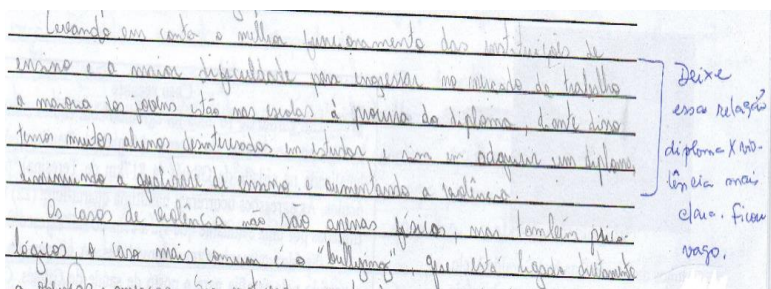 Levando em conta o melhor funcionamento das instituições de
ensino e a maior dificuldade para ingressar no mercado de trabalho
a maioria dos jovens estão nas escolas à procura do diploma, diante disso
temos muitos alunos desinteressados em estudar e sim em adquirir um diploma,
diminuindo a qualidade de ensino e aumentando a violência.
Os casos de violência não são apenas físicos, mas também psico-
lógicos, o caso mais comum é o "bullying", que está ligado diretamente
Deixe
essa relação
diploma X vio-
lência mais
clara. Ficou
vago.